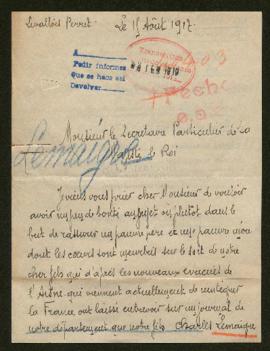 Levallois Perret Le 15 Août 1917
A
Pedir informes
Que se hace así
Devolver
Lemaigre
Monsieur le Secrétaire Particulier de Sa
Majesté le Roi
Je viens vous prier cher Monsieur de vouloir
avoir un peu de bonté au sujet ou plutôt dans le
but de rassurer un pauvre père et une pauvre mère
dont les cœurs sont meurtris sur le sort de notre
cher fils qui d'après les nouveaux évacués de
l'Aisne qui viennent actuellement de réintégrer
la France ont laissé entrevoir sur un journal de
notre département que notre fils Charles Lemaigre